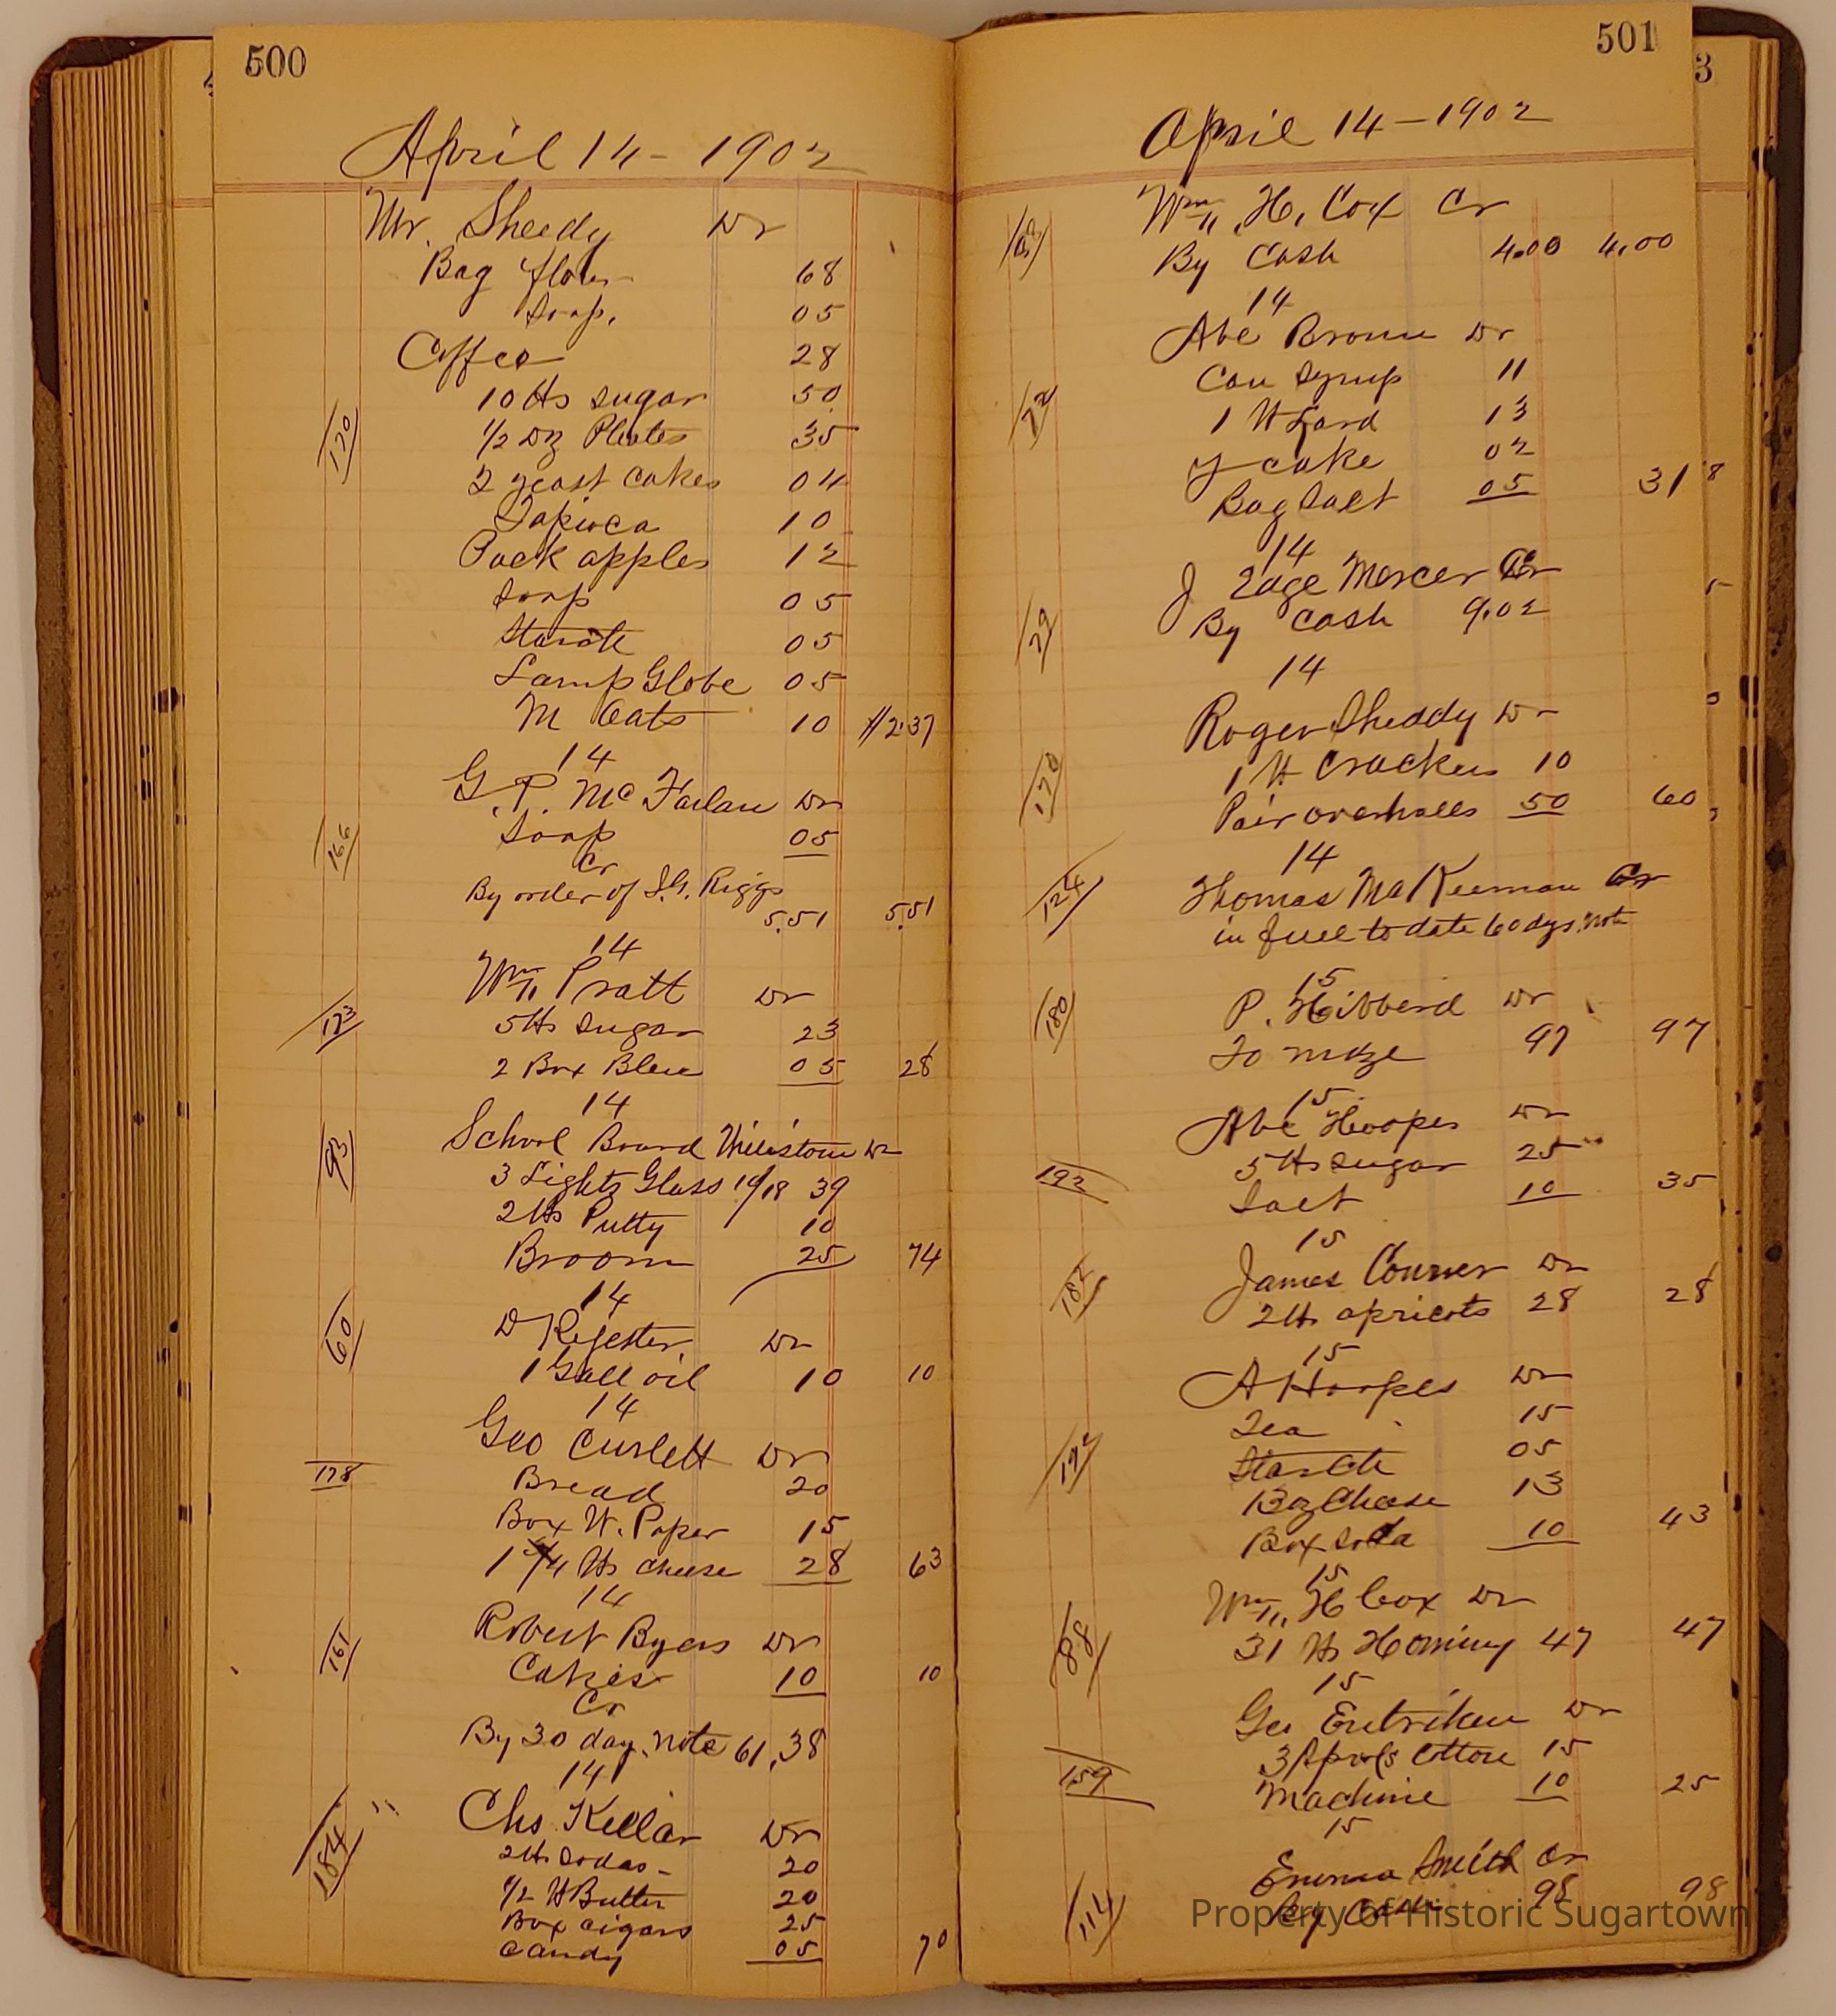 500
April 14 - 1902
Mr. Sheedy Dr
Bag flour 68
Soap. 05
Coffee 28
10 lbs sugar 50
170
1/2 Dz Plates 35
2 yeast cakes 04
Tapioca 10
Pack apples 12
Soap 05
Starch 05
Lamp Globe 05
M Oats 10 $2.37
14
G. P. McFarlan Dr
166
Soap 05
Cr
By order of S.G. Riggs
5.51 5.51
14
Wm Pratt Dr
173
5 lbs sugar 23
2 Box Blue 05 28
14
School Board Willistown Dr
93
3 Lights Glass 14/18 39
2 lbs Putty 10
Broom 25 74
14
60
D Regester Dr
1 Gall oil 10 10
14
Geo Curlett Dr
178
Bread 20
Box W. Paper 15
1 3/4 lbs cheese 28 63
14
161
Robert Byers Dr
Cakes 10 10
Cr
By 30 day. note 61.38
14
184
Chs Kellar Dr
2 lb sodas 20
1/2 lb Butter 20
Box cigars 25
Candy 05 70
501
3
April 14 - 1902
Wm. H. Cox Cr
By Cash 4.00 4.00
14
Abe Brown Dr
Can Syrup 11
1 lb Lard 13
Y cake 02
Bag Salt 05 31
14
J Edge Mercer Cr
By Cash 9.02
14
Roger Sheddy Dr
170
1 lb Crackers 10
Pair overhalls 50 60
14
124
Thomas McKeeman Cr
in full to date 60 dys. note
15
180
P. Hibberd Dr
To mdze 97 97
15
Abe Hoopes Dr
192
5 lbs sugar 25
Salt 10 35
15
182
James Conner Dr
2 lb apricots 28 28
15
A Hoopes Dr
Tea 15
192
Starch 05
13 oz Cheese 13
Box soda 10 43
15
88
Wm. H Cox Dr
31 lb Hominy 47 47
15
Geo Entriken Dr
159
3 Spools cotton 15
Machine 10 25
15
114
Emma Smith Cr
By Cash 98 98
Property of Historic Sugartown